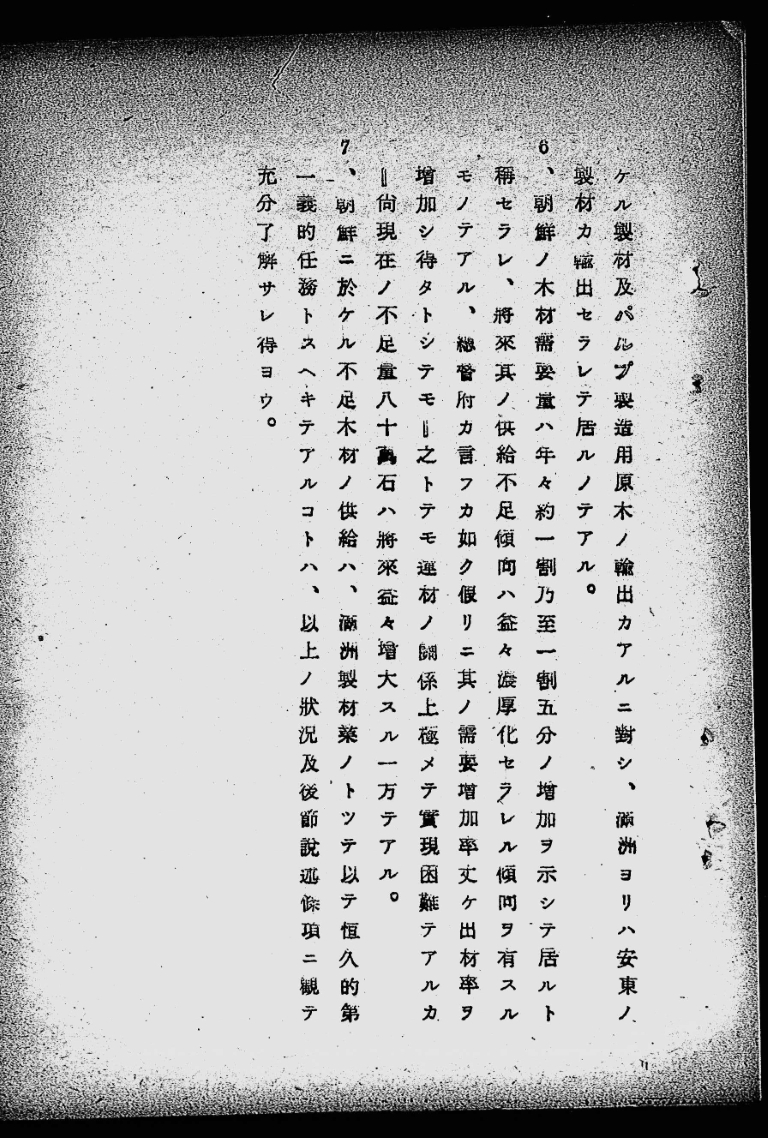 ケル製材及パルプ製造用原木ノ輸出カアルニ對シ、滿洲ヨリハ安東ノ
製材カ輸出セラレテ居ルノテアル。
6、朝鮮ノ木材需要量ハ年々約一割乃至一割五分ノ増加ヲ示シテ居ルト
稱セラレ、將來其ノ供給不足傾向ハ益々濃厚化セラレル傾向ヲ有スル
モノテアル、總督府カ言フカ如ク假リニ其ノ需要増加率丈ケ出材率ヲ
増加シ得タトシテモ‖之トテモ運材ノ關係上極メテ實現困難テアルカ
‖尙現在ノ不足量八十萬石ハ將來益々増大スル一方テアル。
7、朝鮮ニ於ケル不足木材ノ供給ハ、滿洲製材業ノトツテ以テ恒久的第
一義的任務トスヘキテアルコトハ、以上ノ狀況及後節說述條項ニ観テ
充分了解サレ得ヨウ。